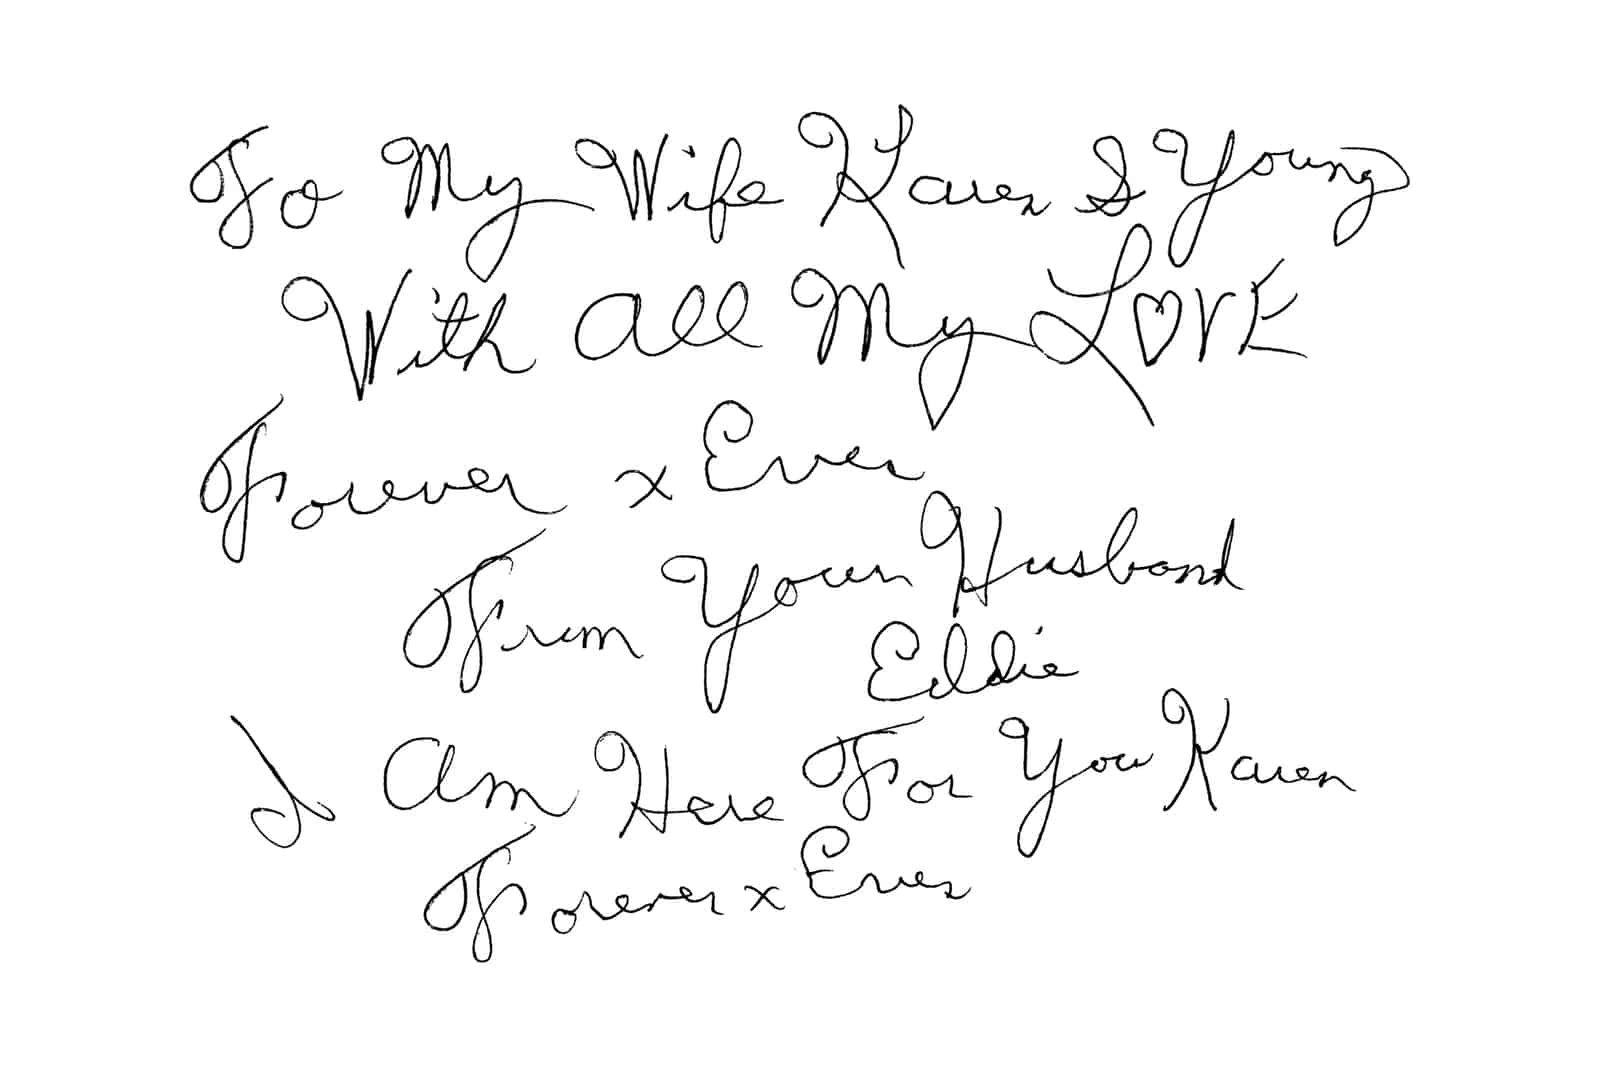 To My Wife Karen S Young
With all My LOVE
Forever x Ever
From Your Husband
Eddie
I Am Here For You Karen
Forever x Ever